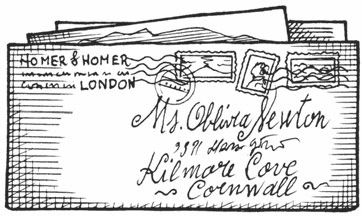 HOMER & HOMER
LONDON
Ms. Oblivia Newton
Kilmore Cove
~ Cornwall ~